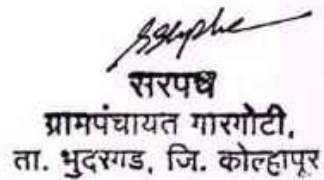 सरपंच
ग्रामपंचायत गारगोटी,
ता. भुदरगड, जि. कोल्हापूर